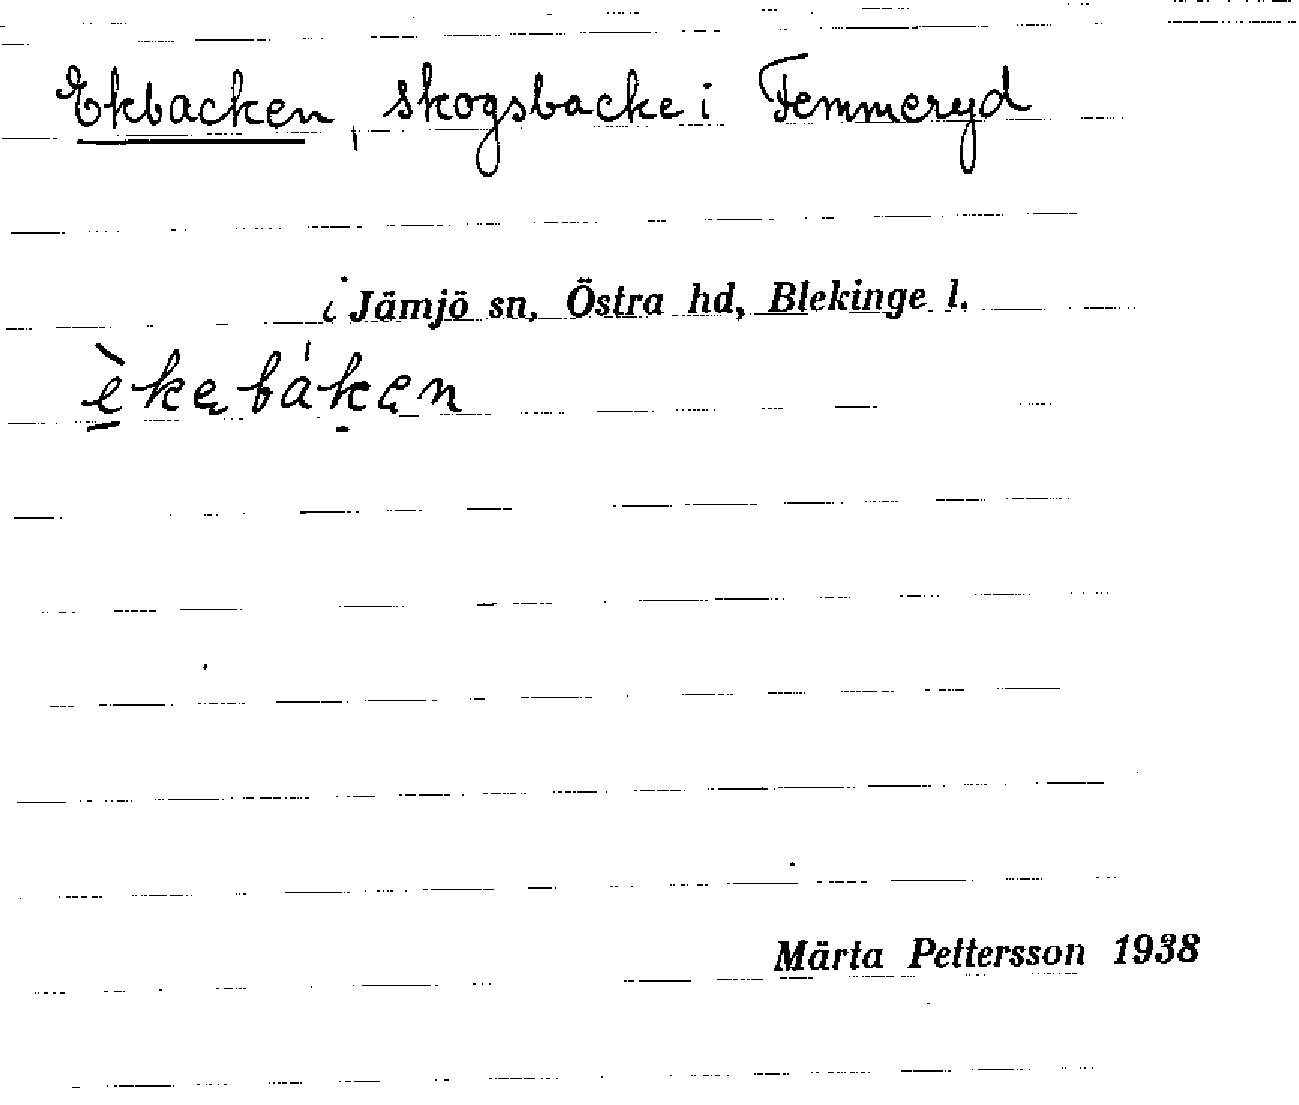 Ekbacken, skogsbacke i Femmeryd
i Jämjö sn, Östra hd, Blekinge l.
èkębákęn
Märta Pettersson 1938